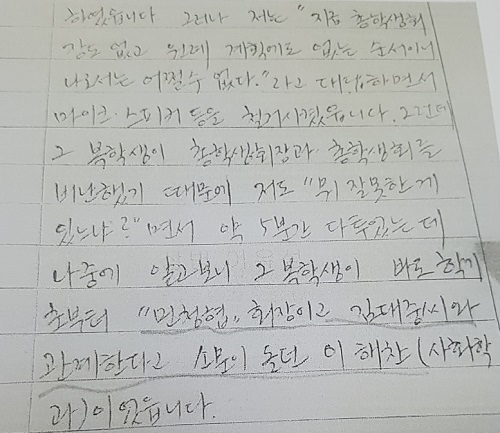 하였읍니다 그러나 저는 "지금 총학생회
장도 없고 원래 계획에도 없는 순서이니
나로서는 어쩔수 없다." 라고 대답하면서
마이크·스피커 등을 철거시켰읍니다. 그런데
그 복학생이 총학생회장과 총학생회를
비난했기 때문에 저도 "뭐 잘못한게
있느냐?" 면서 약 5분간 다투었는데
나중에 알고보니 그 복학생이 바로 학기
초부터 "민청협" 회장이고 김대중씨와
관계한다고 소문이 돌던 이해찬 (사회학
과) 이었읍니다.